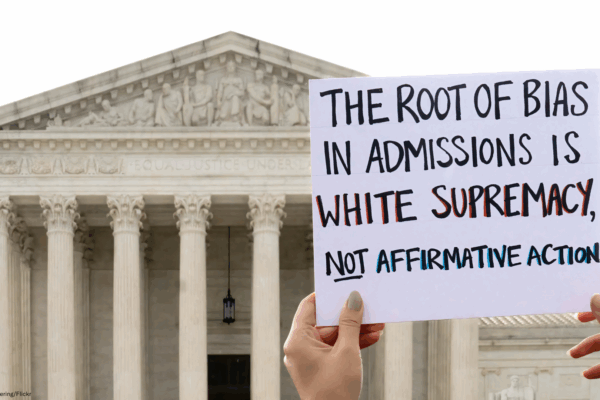 EQUAL JUSTICE UNDER
THE ROOT OF BIAS
IN ADMISSIONS IS
WHITE SUPREMACY,
NOT AFFIRMATIVE ACTION
ering/Flickr